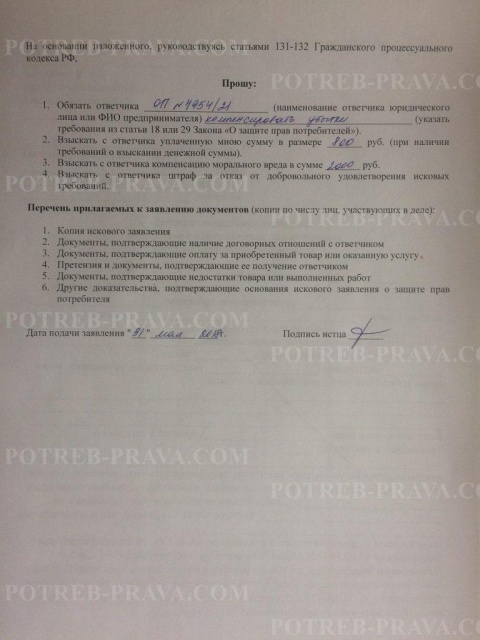 POTREB-PRAVA.COM POTREB-PRAVA.CO
На основании изложенного, руководствуясь статьями 131-132 Гражданского процессуального
кодекса РФ,
Прошу:
1. Обязать ответчика ОП №4954/21 (наименование ответчика юридического
лица или ФИО предпринимателя) компенсировать убытки (указать
требования из статьи 18 или 29 Закона «О защите прав потребителей»).
2. Взыскать с ответчика уплаченную мною сумму в размере 800 руб. (при наличии
требований о взыскании денежной суммы).
3. Взыскать с ответчика компенсацию морального вреда в сумме 2000 руб.
4. Взыскать с ответчика штраф за отказ от добровольного удовлетворения исковых
требований.
POTREB-PRAVA.COM POTREB-PRAVA.CO
Перечень прилагаемых к заявлению документов (копии по числу лиц, участвующих в деле):
1. Копия искового заявления
2. Документы, подтверждающие наличие договорных отношений с ответчиком
3. Документы, подтверждающие оплату за приобретенный товар или оказанную услугу
4. Претензия и документы, подтверждающие ее получение ответчиком
5. Документы, подтверждающие недостатки товара или выполненных работ
6. Другие доказательства, подтверждающие основания искового заявления о защите прав
потребителя
POTREB-PRAVA.COM POTREB-PRAVA.CO
Дата подачи заявления "31" мая Подпись истца
POTREB-PRAVA.COM POTREB-PRAVA.CO
POTREB-PRAVA.COM POTREB-PRAVA.CO
POTREB-PRAVA.COM POTREB-PRAVA.CO